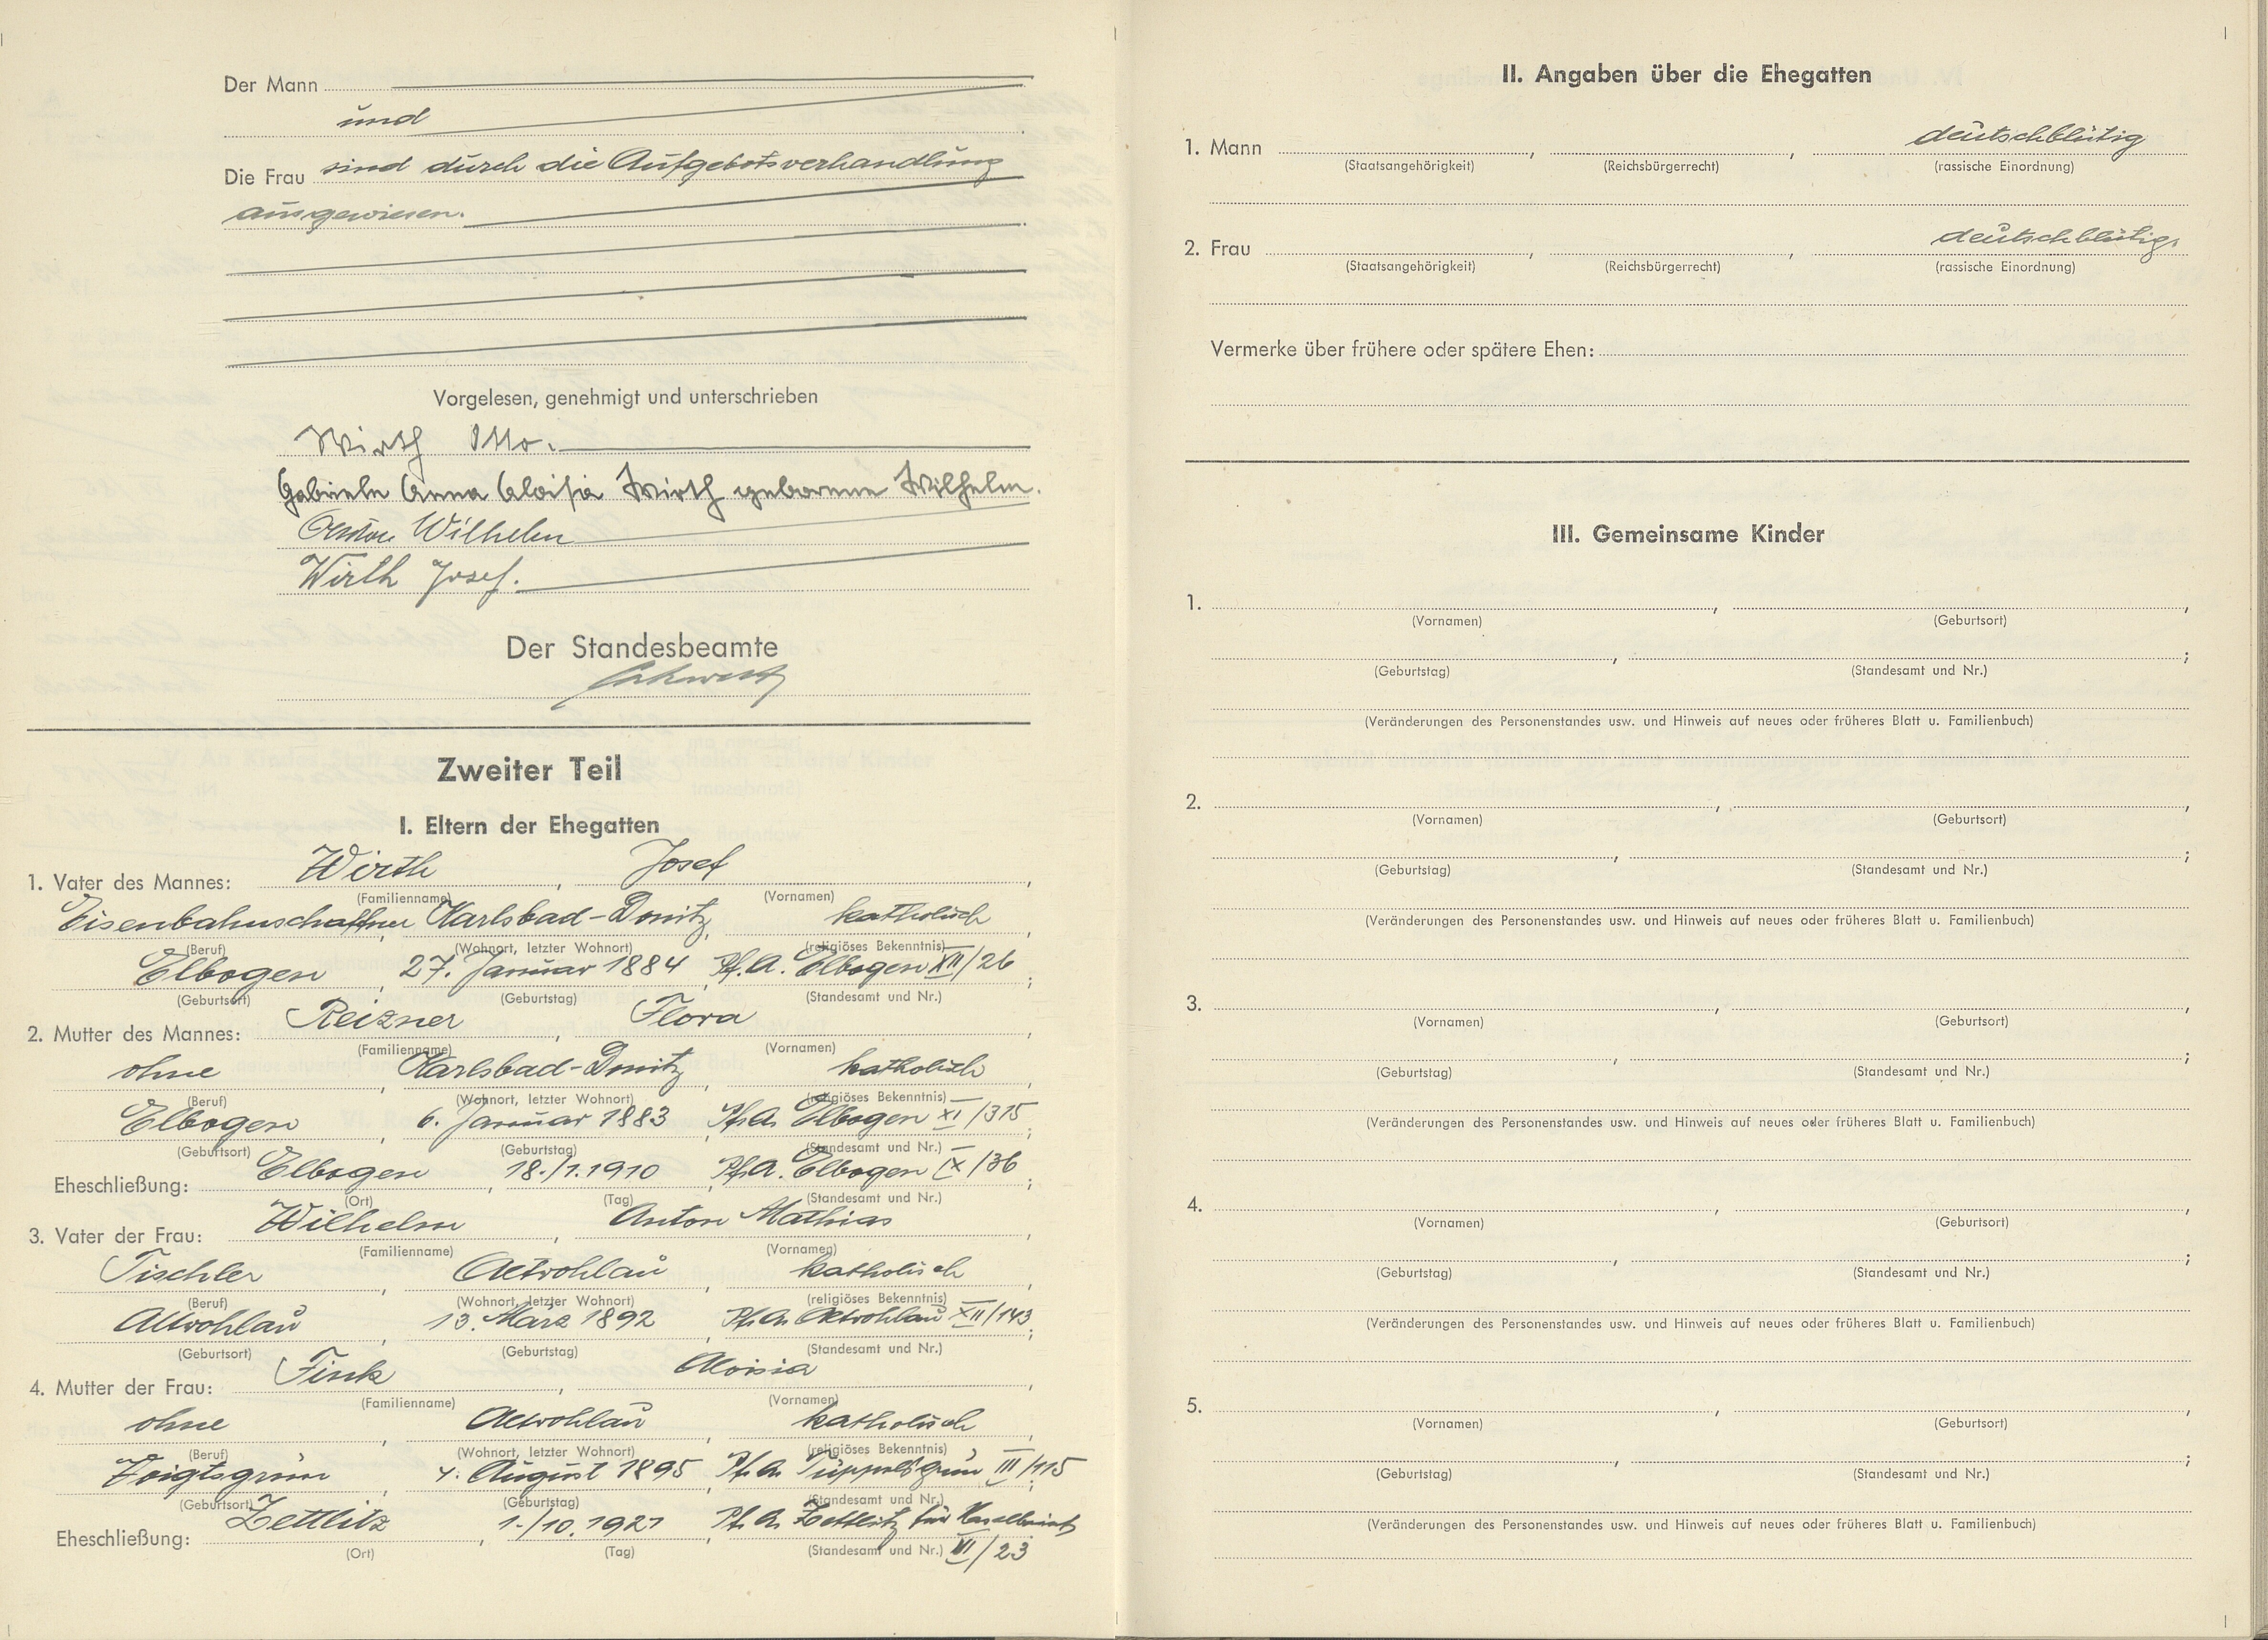 Der Mann
und
Die Frau sind durch die Aufgebotsverhandlung
ausgewiesen.
Vorgelesen, genehmigt und unterschrieben
Wirth Otto.
Gabriele Anna Aloisia Wirth geborene Wilhelm.
Anton Wilhelm
Wirth Josef.
Der Standesbeamte
Zweiter Teil
I. Eltern der Ehegatten
1. Vater des Mannes: Wirth, Josef,
(Familienname) (Vornamen)
Eisenbahnschaffner, Karlsbad-Donitz, katholisch
(Beruf) (Wohnort, letzter Wohnort) (religiöses Bekenntnis)
Elbogen, 27. Januar 1884, Pf.A. Elbogen XII/26;
(Geburtsort) (Geburtstag) (Standesamt und Nr.)
2. Mutter des Mannes: Reizner, Flora,
(Familienname) (Vornamen)
ohne, Karlsbad-Donitz, katholisch,
(Beruf) (Wohnort, letzter Wohnort) (religiöses Bekenntnis)
Elbogen, 6. Januar 1883, Pf.A. Elbogen XI/315;
(Geburtsort) (Geburtstag) (Standesamt und Nr.)
Eheschließung: Elbogen, 18./1.1910, Pf.A. Elbogen IX/36;
(Ort) (Tag) (Standesamt und Nr.)
3. Vater der Frau: Wilhelm, Anton Mathias,
(Familienname) (Vornamen)
Tischler, Altrohlau, katholisch,
(Beruf) (Wohnort, letzter Wohnort) (religiöses Bekenntnis)
Altrohlau, 13. März 1892, Pf.A. Altrohlau XII/143;
(Geburtsort) (Geburtstag) (Standesamt und Nr.)
4. Mutter der Frau: Fink, Aloisia,
(Familienname) (Vornamen)
ohne, Altrohlau, katholisch,
(Beruf) (Wohnort, letzter Wohnort) (religiöses Bekenntnis)
Voigtsgrün, 4. August 1895, Pf.A. Tüppelsgrün III/115;
(Geburtsort) (Geburtstag) (Standesamt und Nr.)
Eheschließung: Zettlitz, 1./10.1921, Pf.A. Zettlitz für
(Ort) (Tag) (Standesamt und Nr.) VI/23
II. Angaben über die Ehegatten
1. Mann , , deutschblütig
(Staatsangehörigkeit) (Reichsbürgerrecht) (rassische Einordnung)
2. Frau , , deutschblütig
(Staatsangehörigkeit) (Reichsbürgerrecht) (rassische Einordnung)
Vermerke über frühere oder spätere Ehen:
III. Gemeinsame Kinder
1. , ,
(Vornamen) (Geburtsort)
, ;
(Geburtstag) (Standesamt und Nr.)
(Veränderungen des Personenstandes usw. und Hinweis auf neues oder früheres Blatt u. Familienbuch)
2. , ,
(Vornamen) (Geburtsort)
, ;
(Geburtstag) (Standesamt und Nr.)
(Veränderungen des Personenstandes usw. und Hinweis auf neues oder früheres Blatt u. Familienbuch)
3. , ,
(Vornamen) (Geburtsort)
, ;
(Geburtstag) (Standesamt und Nr.)
(Veränderungen des Personenstandes usw. und Hinweis auf neues oder früheres Blatt u. Familienbuch)
4. , ,
(Vornamen) (Geburtsort)
, ;
(Geburtstag) (Standesamt und Nr.)
(Veränderungen des Personenstandes usw. und Hinweis auf neues oder früheres Blatt u. Familienbuch)
5. , ,
(Vornamen) (Geburtsort)
, ;
(Geburtstag) (Standesamt und Nr.)
(Veränderungen des Personenstandes usw. und Hinweis auf neues oder früheres Blatt u. Familienbuch)